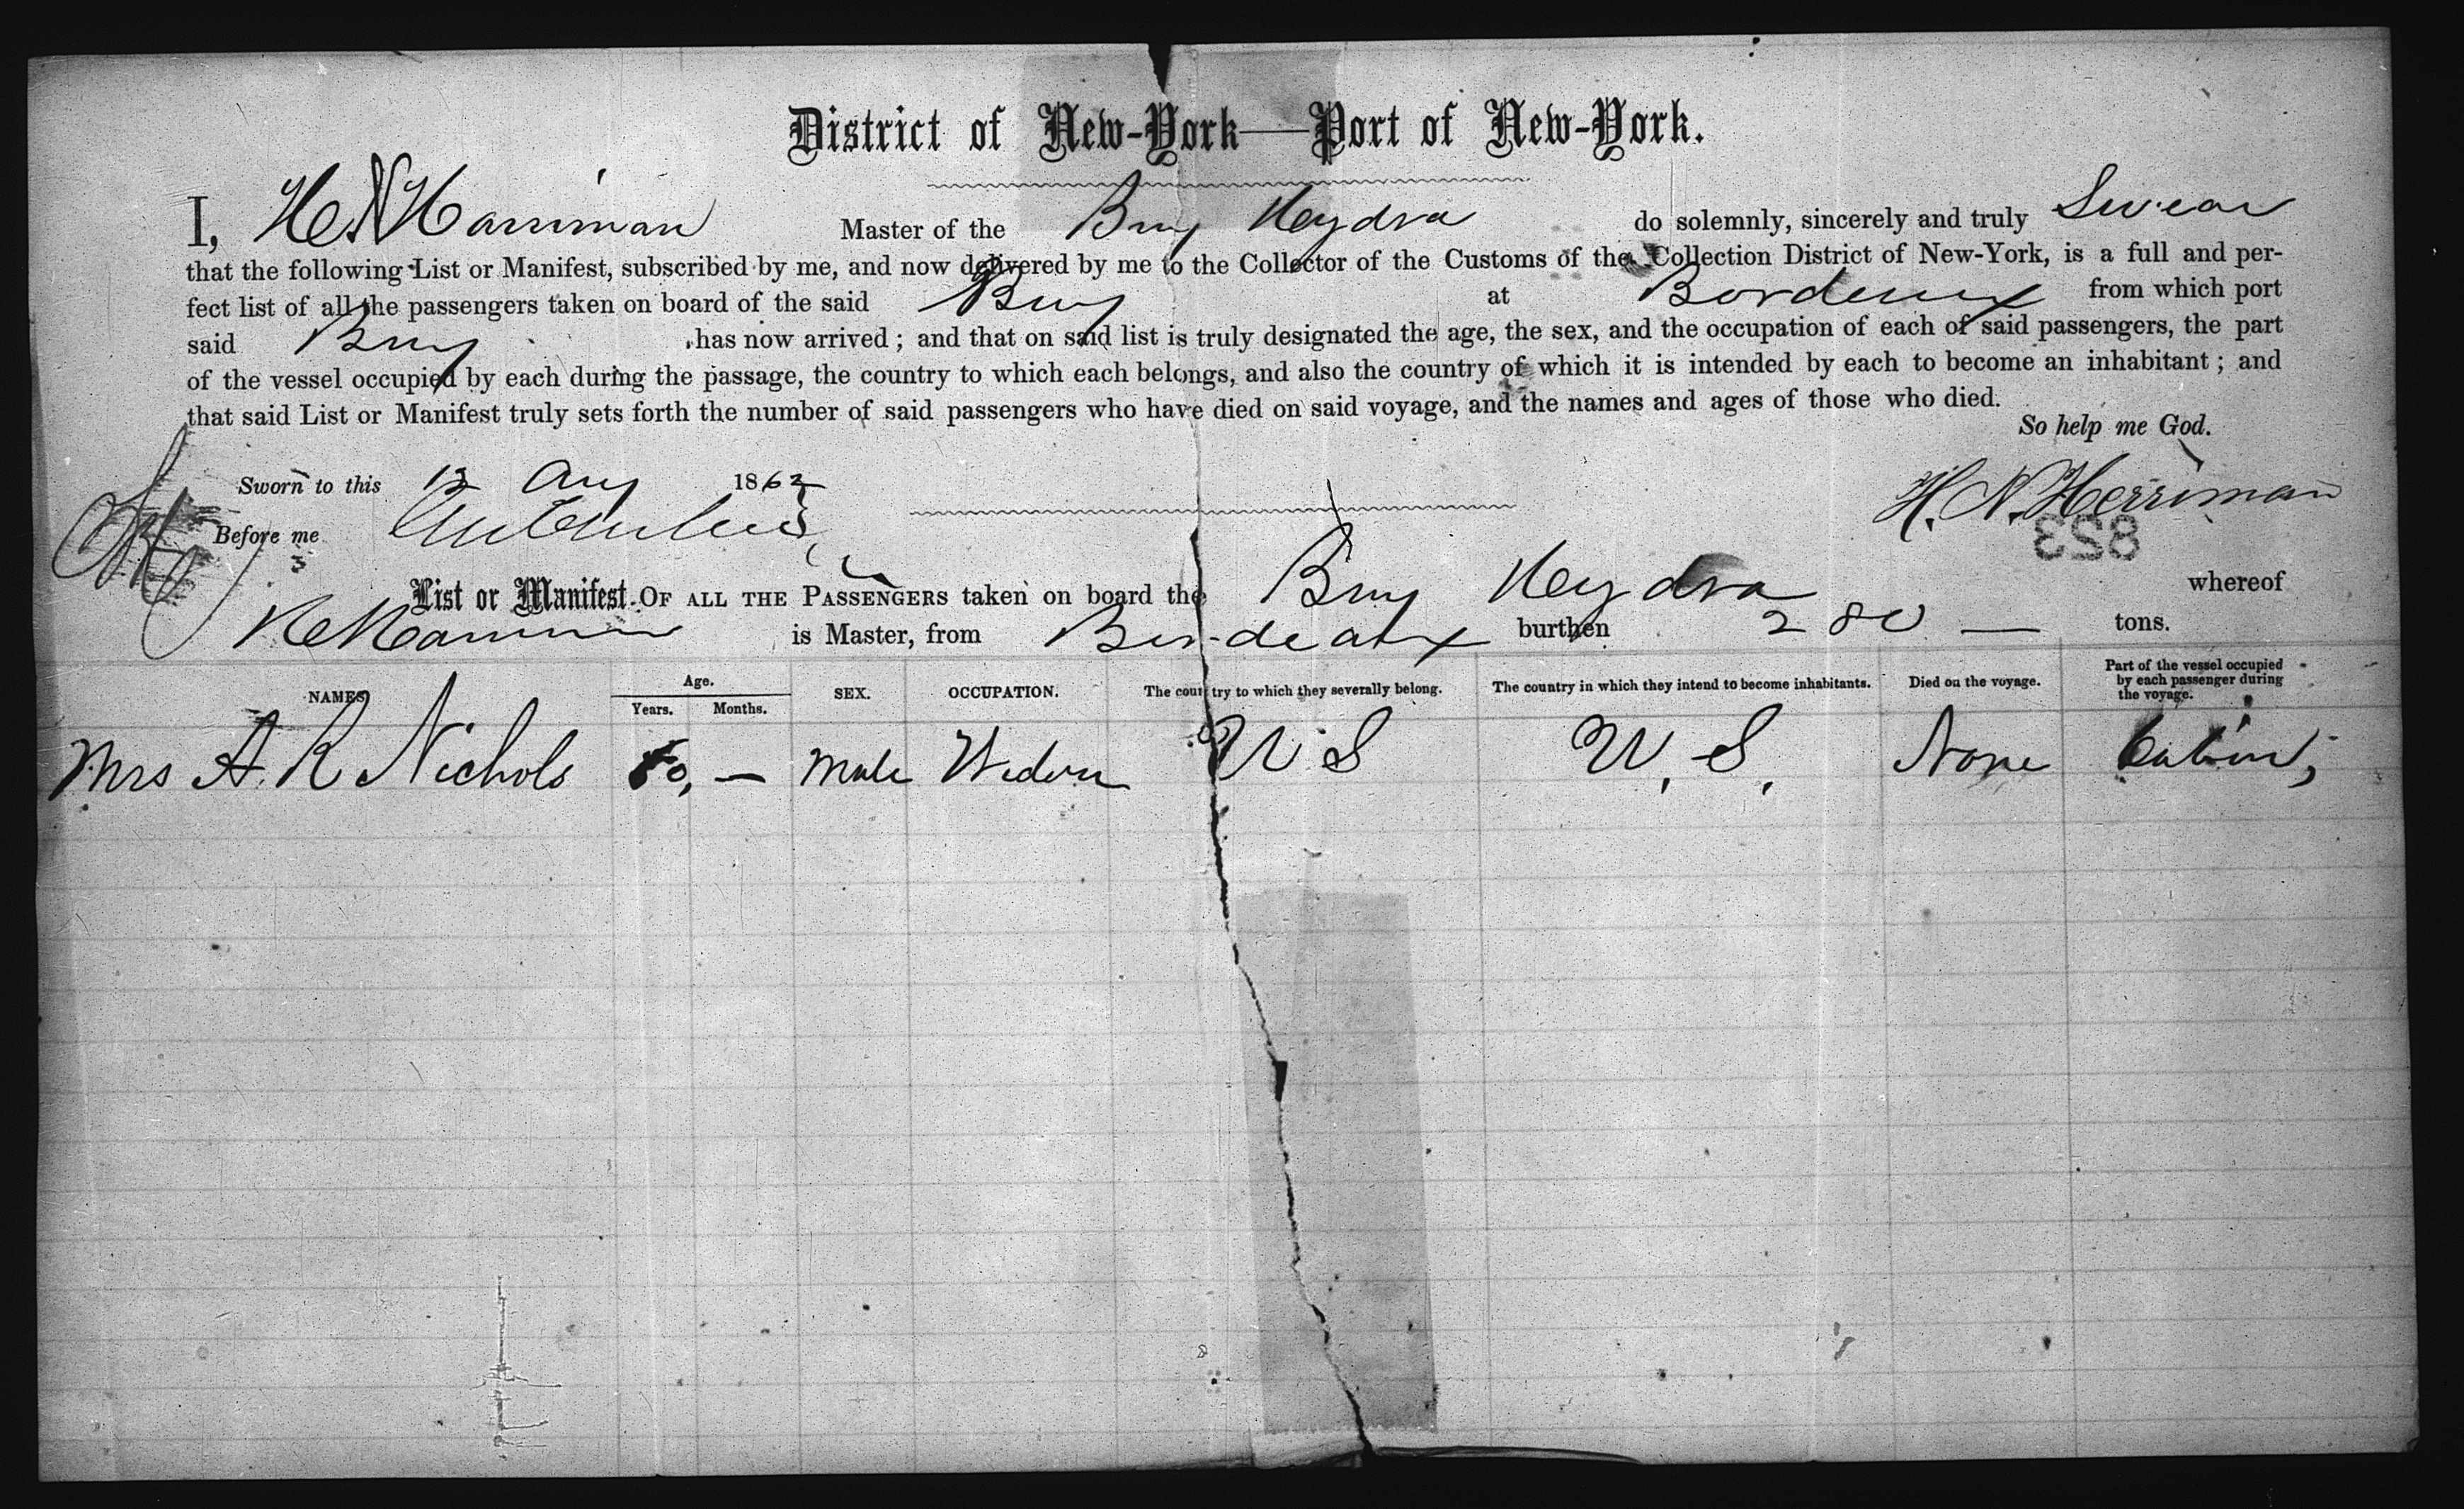 District of New-York—Port of New-York.
I, H N Harriman Master of the Brig Heydra do solemnly, sincerely and truly Swear
that the following List or Manifest, subscribed by me, and now delivered by me to the Collector of the Customs of the Collection District of New-York, is a full and per-
fect list of all the passengers taken on board of the said Brig at Bordeaux from which port
said Brig has now arrived; and that on said list is truly designated the age, the sex, and the occupation of each of said passengers, the part
of the vessel occupied by each during the passage, the country to which each belongs, and also the country of which it is intended by each to become an inhabitant; and
that said List or Manifest truly sets forth the number of said passengers who have died on said voyage, and the names and ages of those who died.
So help me God.
Sworn to this 12 Aug 1862
H. N. Herriman
Before me
823
List or Manifest OF ALL THE PASSENGERS taken on board the Brig Heydra whereof
is Master, from Bordeaux burthen 280 — tons.
NAMES Age. Years. Months. SEX. OCCUPATION. The country to which they severally belong. The country in which they intend to become inhabitants. Died on the voyage. Part of the vessel occupied by each passenger during the voyage.
Mrs A. R Nichols 50, — Male Widow U S U. S. None Cabin,